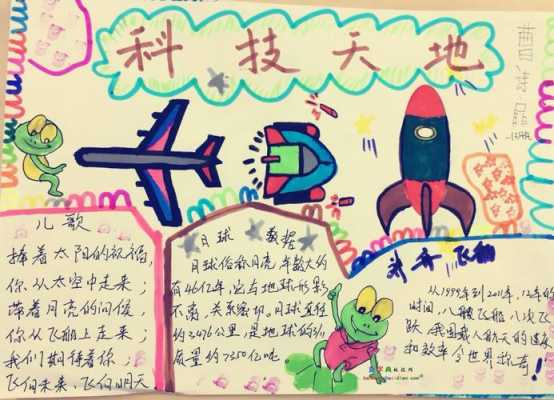 科技天地
儿歌
捧着太阳的祝福,
你,从太空中走来;
带着月亮的问候,
你从飞船上走来;
我们期待着你;
飞向未来、飞向明天
月球 数据
月球俗称月亮,年龄大约
有46亿年,它与地球形影
不离,关系密切,月球直径
约3476公里,是地球的3/11
质量约7350亿吨
神舟飞船
从1999年到2011年,12年的
时间,八艘飞船,八次飞
跃,我国载人航天的速度
和效率令世界称奇!